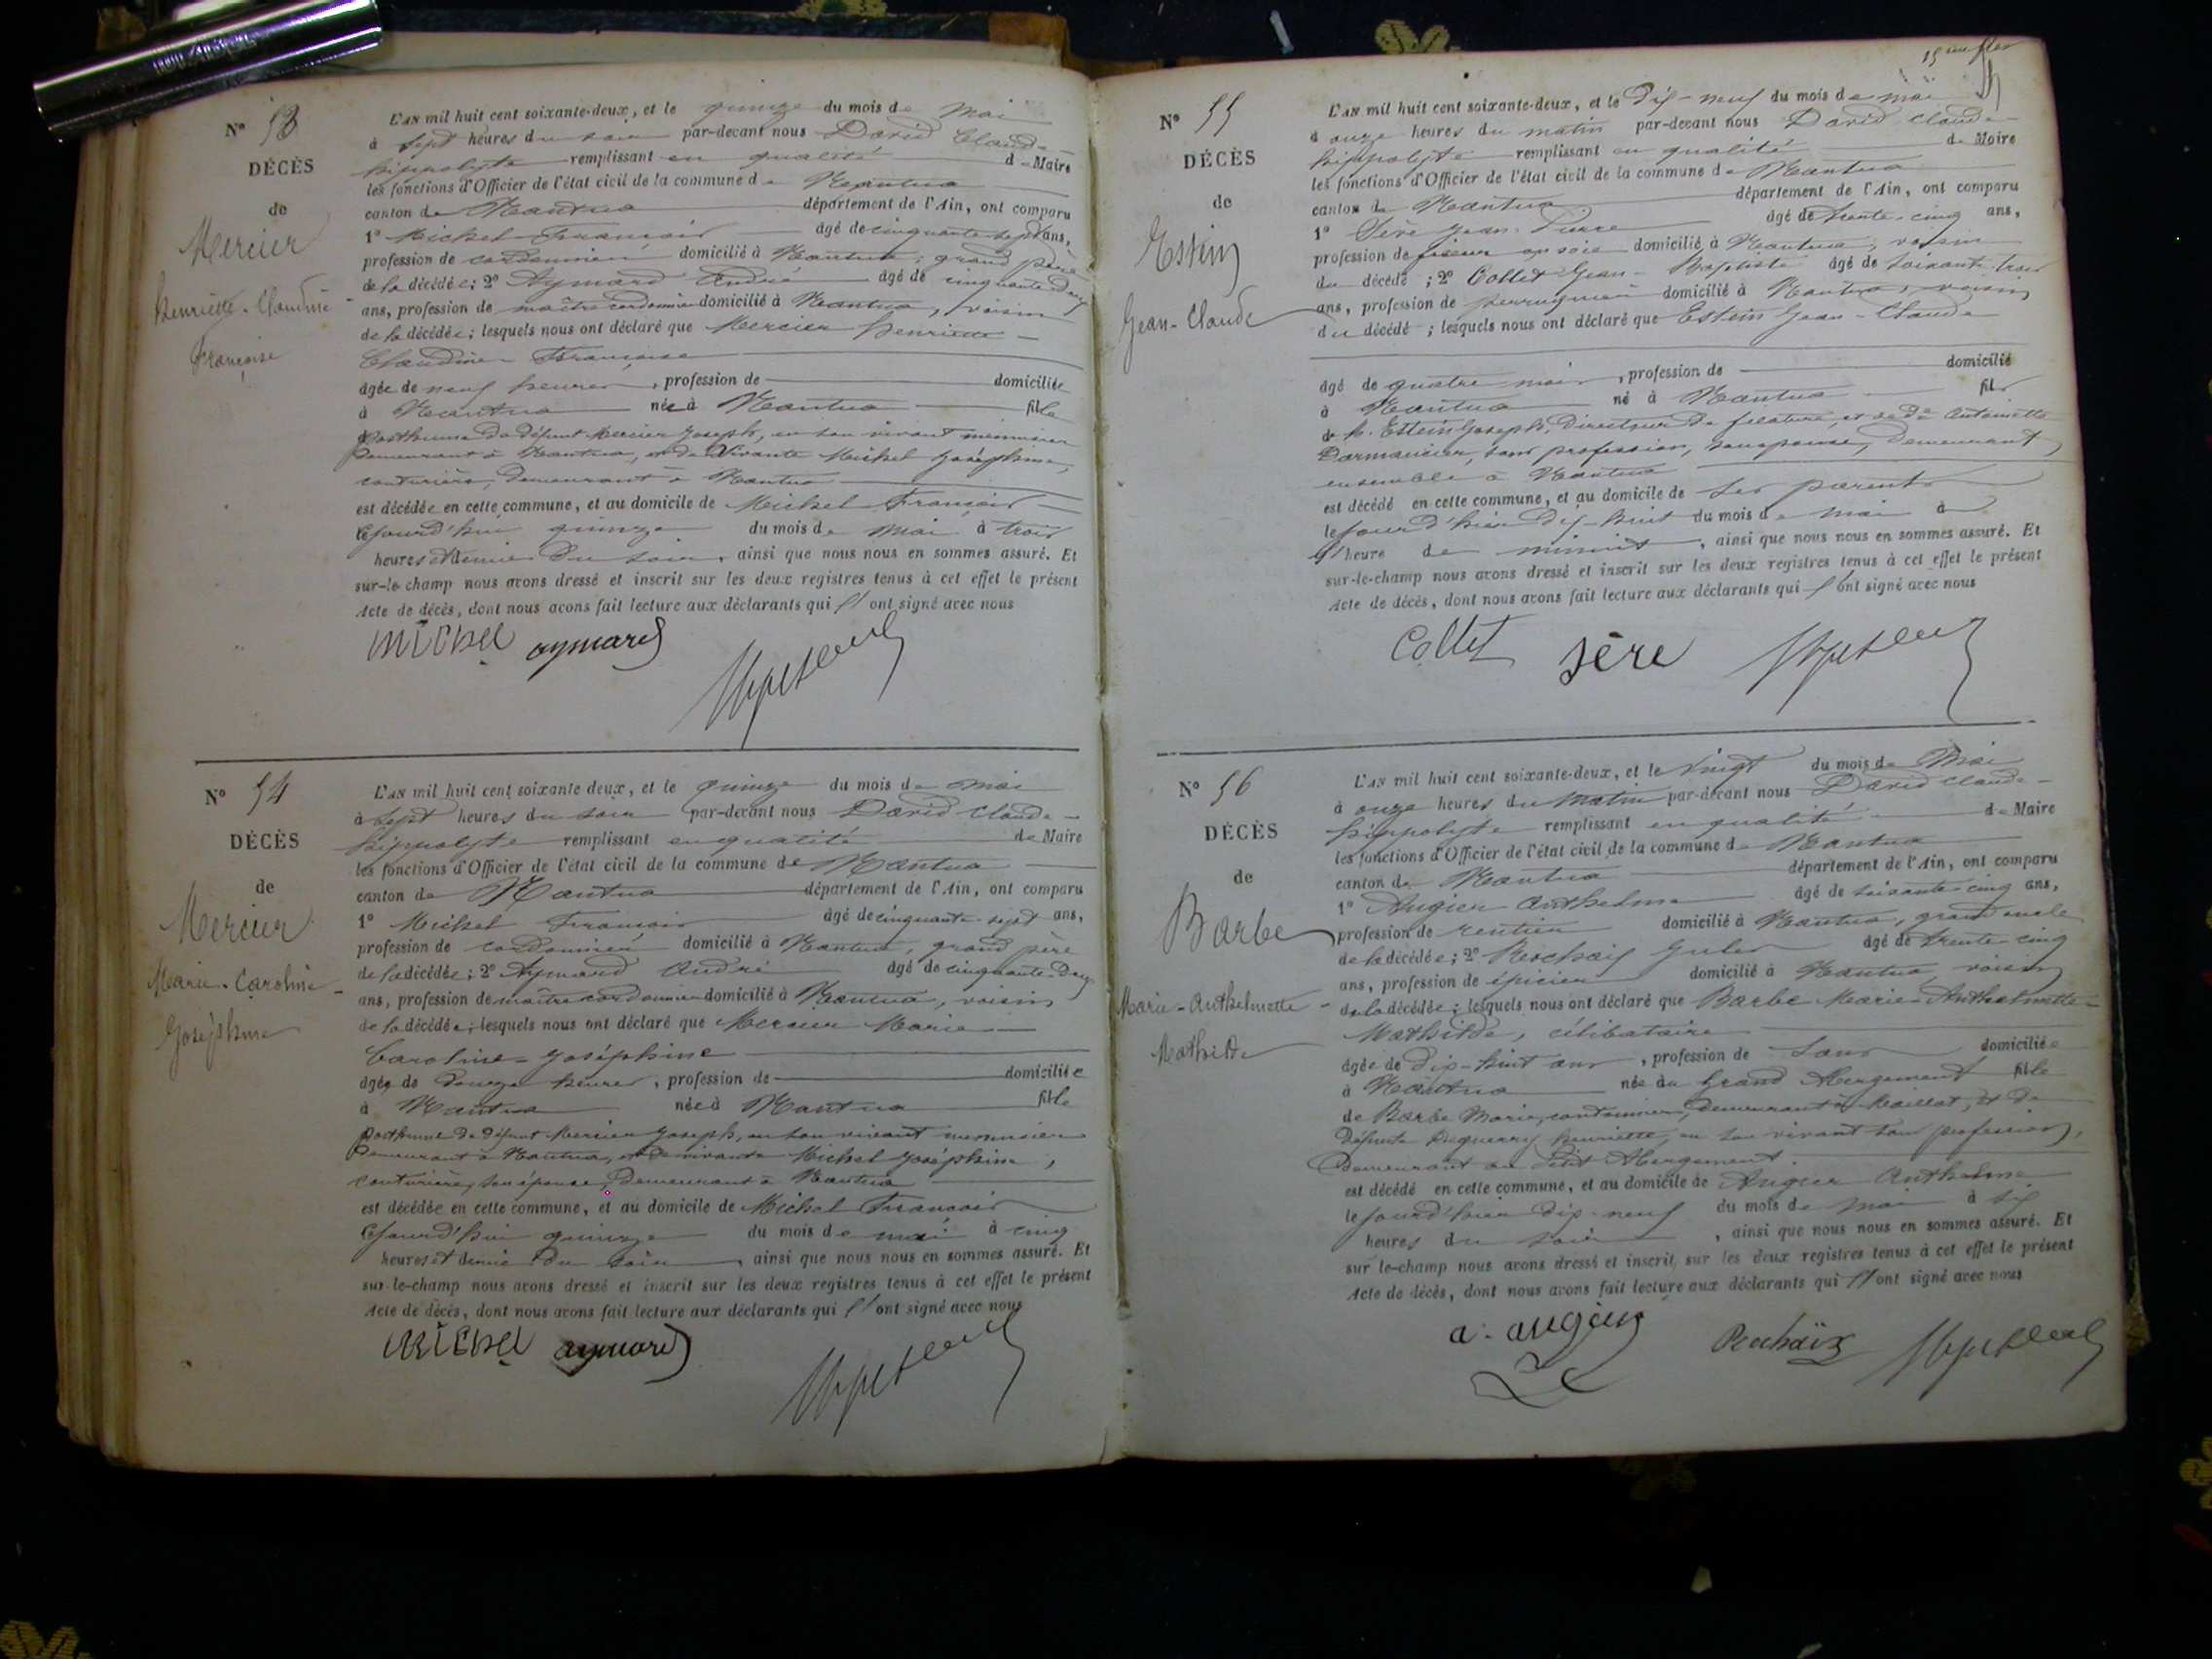 N° 53
DÉCÈS
de
Mercier
Henriette-Claudine
Françoise
L'AN mil huit cent soixante-deux, et le quinze du mois de Mai
à sept heures du soir par-devant nous David Claude
hippolyte remplissant en qualité de Maire
les fonctions d'Officier de l'état civil de la commune de Nantua
canton de Nantua département de l'Ain, ont comparu
1° Michel François âgé de cinquante-sept ans,
profession de cordonnier domicilié à Nantua, grand père
de la décédée; 2° Aymard André âgé de cinquante-deux
ans, profession de maître cordonnier domicilié à Nantua, voisin
de la décédée; lesquels nous ont déclaré que Mercier henriette
Claudine-Françoise
âgée de neuf heures, profession de domiciliée
à Nantua née à Nantua fille
posthume de défunt Mercier Joseph, en son vivant menuisier
demeurant à Nantua, et de vivante Michel Joséphine,
couturière, demeurant à Nantua
est décédée en cette commune, et au domicile de Michel François
cejourd'hui quinze du mois de mai à trois
heures et demie du soir, ainsi que nous nous en sommes assuré. Et
sur-le-champ nous avons dressé et inscrit sur les deux registres tenus à cet effet le présent
Acte de décès, dont nous avons fait lecture aux déclarants qui l'ont signé avec nous
Michel aymard
N° 54
DÉCÈS
de
Mercier
Marie-Caroline
Joséphine
L'AN mil huit cent soixante-deux, et le quinze du mois de mai
à sept heures du soir par-devant nous David Claude-
hippolyte remplissant en qualité de Maire
les fonctions d'Officier de l'état civil de la commune de Nantua
canton de Nantua département de l'Ain, ont comparu
1° Michel François âgé de cinquante-sept ans,
profession de cordonnier domicilié à Nantua, grand père
de la décédée; 2° Aymard André âgé de cinquante-deux
ans, profession de maître cordonnier domicilié à Nantua, voisin
de la décédée; lesquels nous ont déclaré que Mercier Marie
Caroline-Joséphine
âgée de douze heures, profession de domiciliée
à Nantua née à Nantua fille
posthume de défunt Mercier Joseph, en son vivant menuisier
demeurant à Nantua, et de vivante Michel Joséphine,
couturière, son épouse, demeurant à Nantua
est décédée en cette commune, et au domicile de Michel François
cejourd'hui quinze du mois de mai à cinq
heures et demie du soir, ainsi que nous nous en sommes assuré. Et
sur-le-champ nous avons dressé et inscrit sur les deux registres tenus à cet effet le présent
Acte de décès, dont nous avons fait lecture aux déclarants qui l'ont signé avec nous
Michel aymard
N° 55
DÉCÈS
de
Estein
Jean-Claude
L'AN mil huit cent soixante-deux, et le dix-neuf du mois de mai
à onze heures du matin par-devant nous David Claude
hippolyte remplissant en qualité de Maire
les fonctions d'Officier de l'état civil de la commune de Nantua
canton de Nantua département de l'Ain, ont comparu
1° Sère Jean-Pierre âgé de trente-cinq ans,
profession de en soie domicilié à Nantua, voisin
du décédé; 2° Collet Jean-Baptiste âgé de soixante-trois
ans, profession de perruquier domicilié à Nantua, voisin
du décédé; lesquels nous ont déclaré que Estein Jean-Claude
âgé de quatre mois, profession de domicilié
à Nantua né à Nantua fils
de Estein Joseph, Directeur de filature, et de Antoinette
sans profession, son épouse, demeurant
ensemble à Nantua
est décédé en cette commune, et au domicile de ses parents
le jour d'hier dix-huit du mois de mai à
l'heure de minuit, ainsi que nous nous en sommes assuré. Et
sur-le-champ nous avons dressé et inscrit sur les deux registres tenus à cet effet le présent
Acte de décès, dont nous avons fait lecture aux déclarants qui l'ont signé avec nous
Collet Sère
N° 56
DÉCÈS
de
Barbe
Marie-Anthelmette
Mathilde
L'AN mil huit cent soixante-deux, et le vingt du mois de Mai
à onze heures du matin par-devant nous David Claude-
hippolyte remplissant en qualité de Maire
les fonctions d'Officier de l'état civil de la commune de Nantua
canton de Nantua département de l'Ain, ont comparu
1° Augier Anthelme âgé de soixante-cinq ans,
profession de rentier domicilié à Nantua, grand oncle
de la décédée; 2° Rochaix Jules âgé de trente-cinq
ans, profession de épicier domicilié à Nantua, voisin
de la décédée; lesquels nous ont déclaré que Barbe Marie-Anthelmette-
Mathilde, célibataire
âgée de dix-huit ans, profession de sans domiciliée
à Nantua née au Grand Abergement fille
de Barbe Marie, cantonnier, demeurant à Maillat, et de
défunte henriette, en son vivant sans profession,
demeurant au Petit Abergement.
est décédé en cette commune, et au domicile de Augier Anthelme
le jour d'hier dix-neuf du mois de mai à six
heures du soir, ainsi que nous nous en sommes assuré. Et
sur-le-champ nous avons dressé et inscrit sur les deux registres tenus à cet effet le présent
Acte de décès, dont nous avons fait lecture aux déclarants qui l'ont signé avec nous
a. augier Rochaix